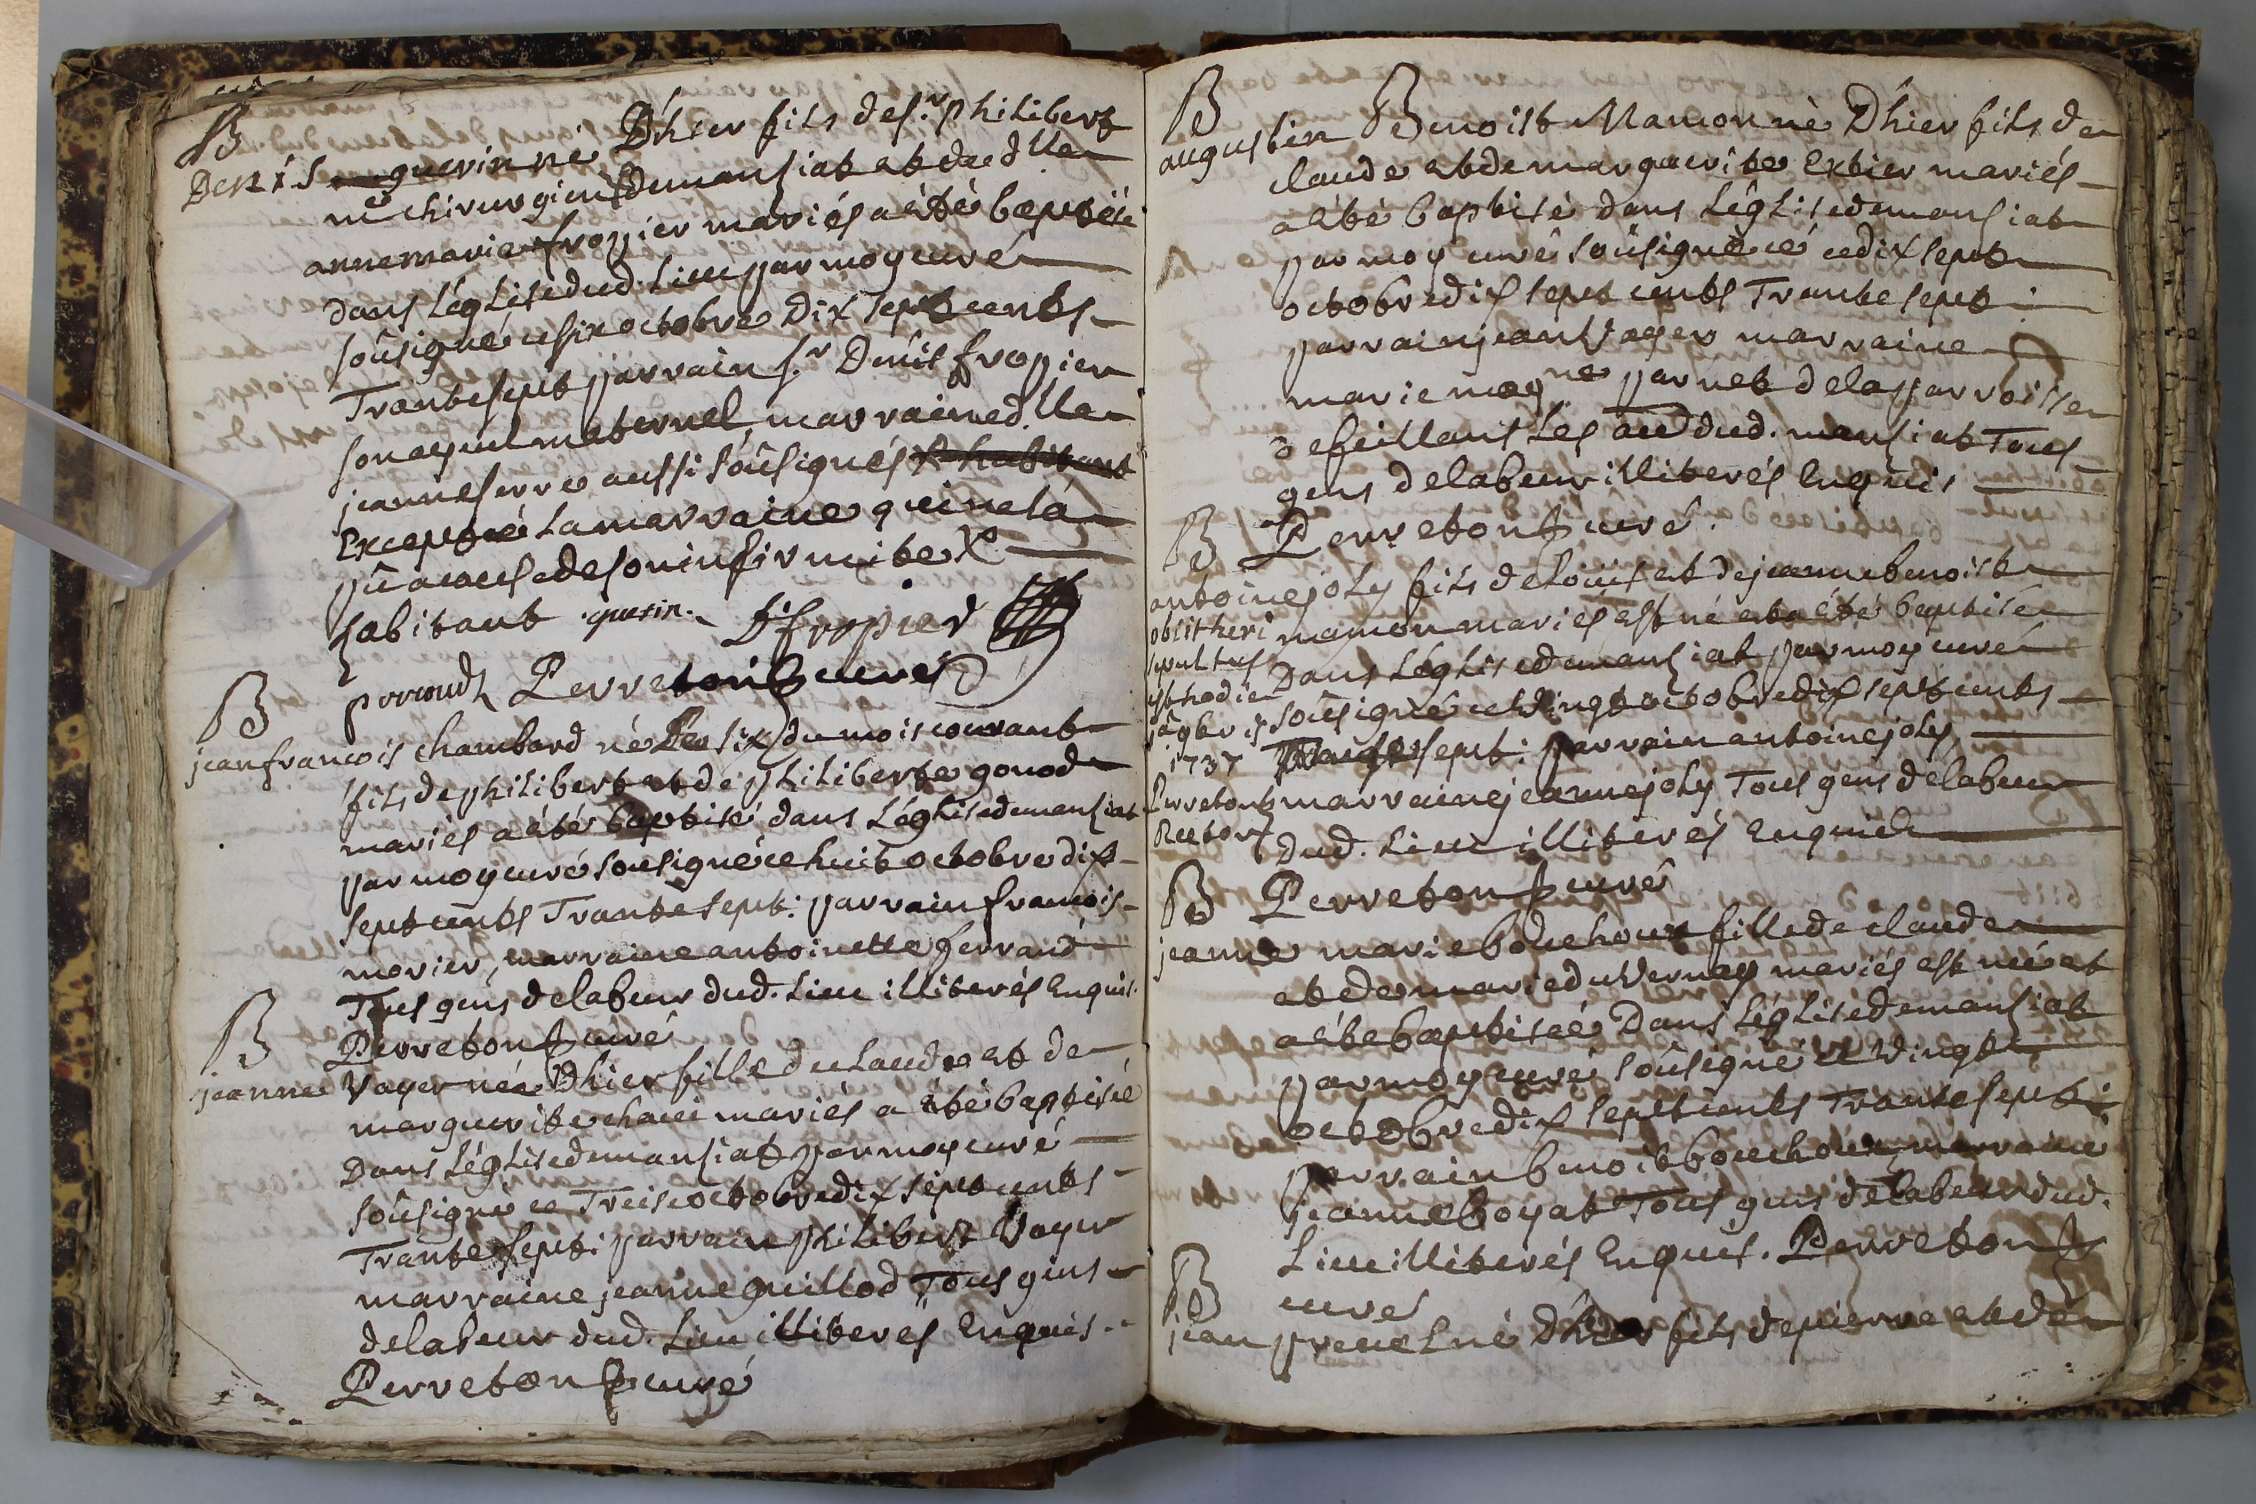 B
Denis guerin né Dhier fils de s.r philibert
m.e chirurgien demansiat et de d.lle
anne marie fropier mariés a été baptisé
dans L'églisedud. Lieu par moy curé
soûsigné ce six octobre Dix sept cents
Trante sept parrain s.r Denis fropier
son ayeul maternel marraine d.lle
jeanne serre aussi soûsignés
Excepté La marraine qui ne la
pû a cause de son infirmite
habitant guerin. D fropier
Perreton curé
B
jean francois chambard né Le six du mois courant
fils de philibert et de philiberte gonod
mariés a été baptisé dans L'église demansiat
par moy curé soûsigné ce huit octobre dix
sept cents Trante sept: parrain francois
morier, marraine antoinette ferrand
Tous gens de labeur dud. Lieu illiterés Enquis.
Perreton curé
B
jeanne Vayer née Dhier fille de claude et de
marguerite chaue mariés a été baptisée
Dans L'église demansiat par moy curé
soûsigné ce Treise octobre dix sept cents
Trante sept: parrain philibert Vayer
marraine jeanne guillod Tous gens
de labeur dud. Lieu illiterés Enquis.
Perreton curé
B
augustin Benoist Mamon né Dhier fils de
claude et de marguerite Extier mariés
a été baptisé dans L'église demansiat
par moy curé soûsigné ce dix sept
octobre dix sept cents Trante sept:
parrain jean Vayer marraine
marie parnet de la parroisse
defeillans Les dud. mansiat Tous
gens de labeur illiterés Enquis
Perreton curé.
B
antoine joly fils de Loüis et de jeanne benoist
mamon mariés est né et a été baptisé
Dans L'église demansiat par moy curé
soûsigné ce Vingt octobre dix sept cents
Trante sept: parrain antoine joly
marraine jeanne joly Tous gens de labeur
Dud. Lieu illiterés Enquis
obiit heri
sepultus
est hodie
1737
Perreton
Rector
Perreton curé
B
jeanne marie bouchoux fille de claude
et de marie du Vernay mariés est née et
a été baptiseé Dans L'église demansiat
par moy curé soûsigné ce Vingt
octobre dix sept cents Trante sept:
parrain benoit bouchoux marraine
jeanne boyat Tous gens de labeur dud.
Lieu illiterés Enquis. Perreton
curé
B
jean preuel né Dhier fils de pierre et de